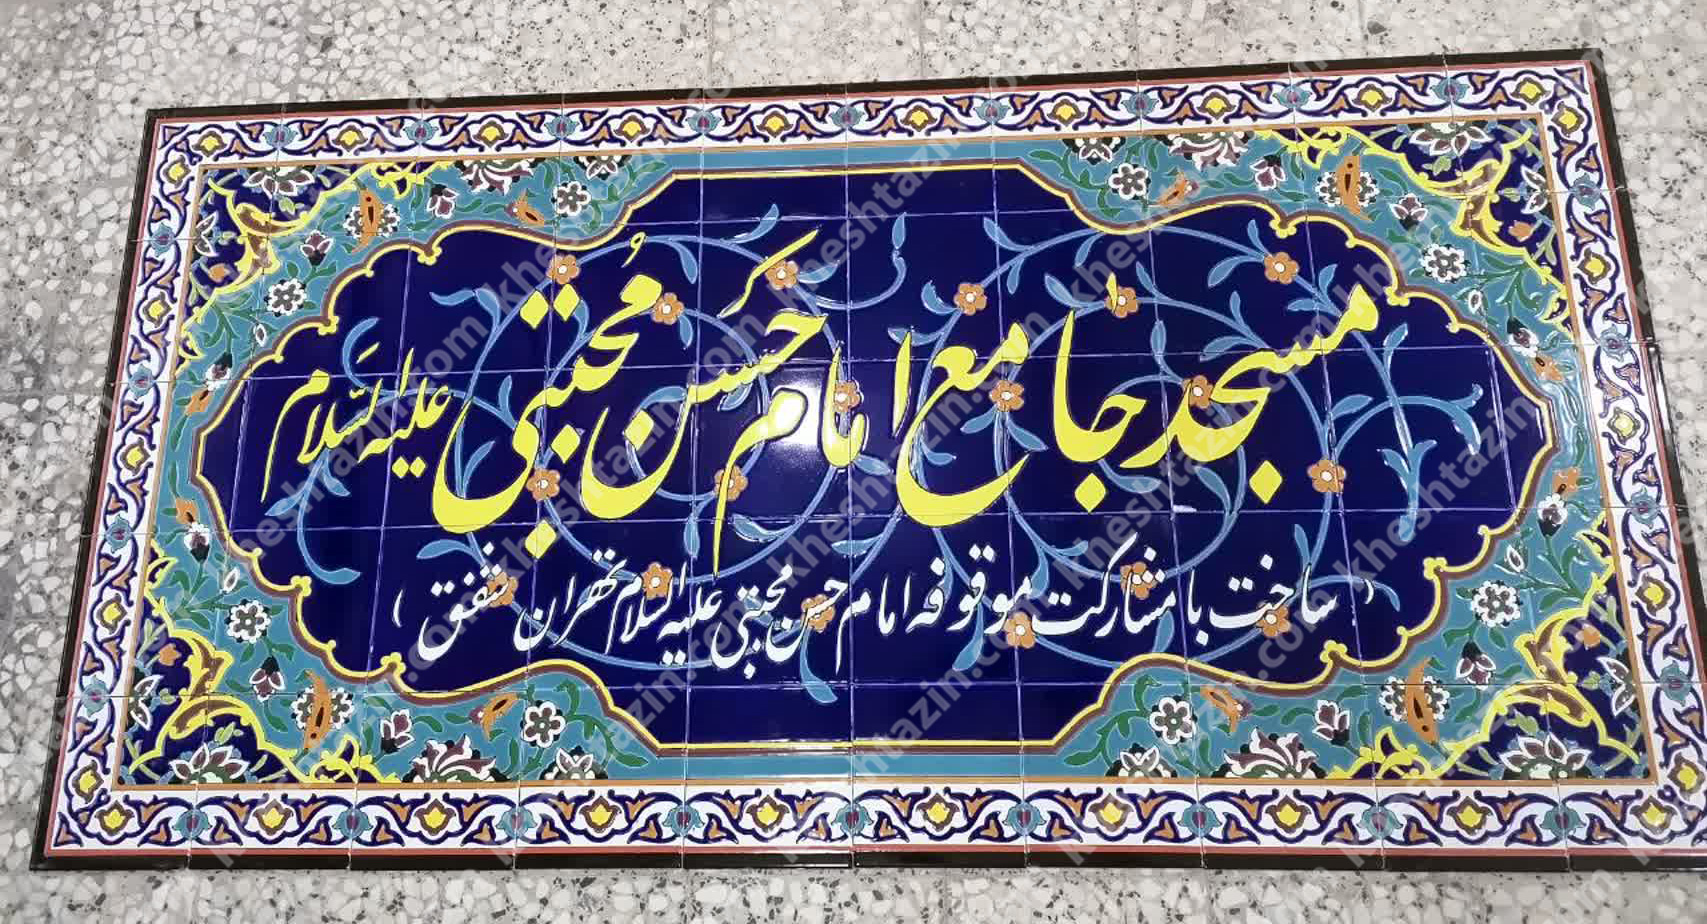 مسجد جامع امام حَسَن مُجتبی علیه السَّلام
( ساخت با مشارکت موقوفه امام حسن مجتبی علیه السلام تهران شفق )
kheshtazin.com